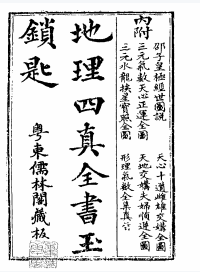 內附
邵子皇極經世圖說
三元氣數天心正運全圖
三元水龍挨星寶照全圖
天心十道雌雄交媾全圖
天地交媾夫婦順逆全圖
形理氣數全集真言
地理四真全書玉
鎖匙
粵東儒林閣藏板